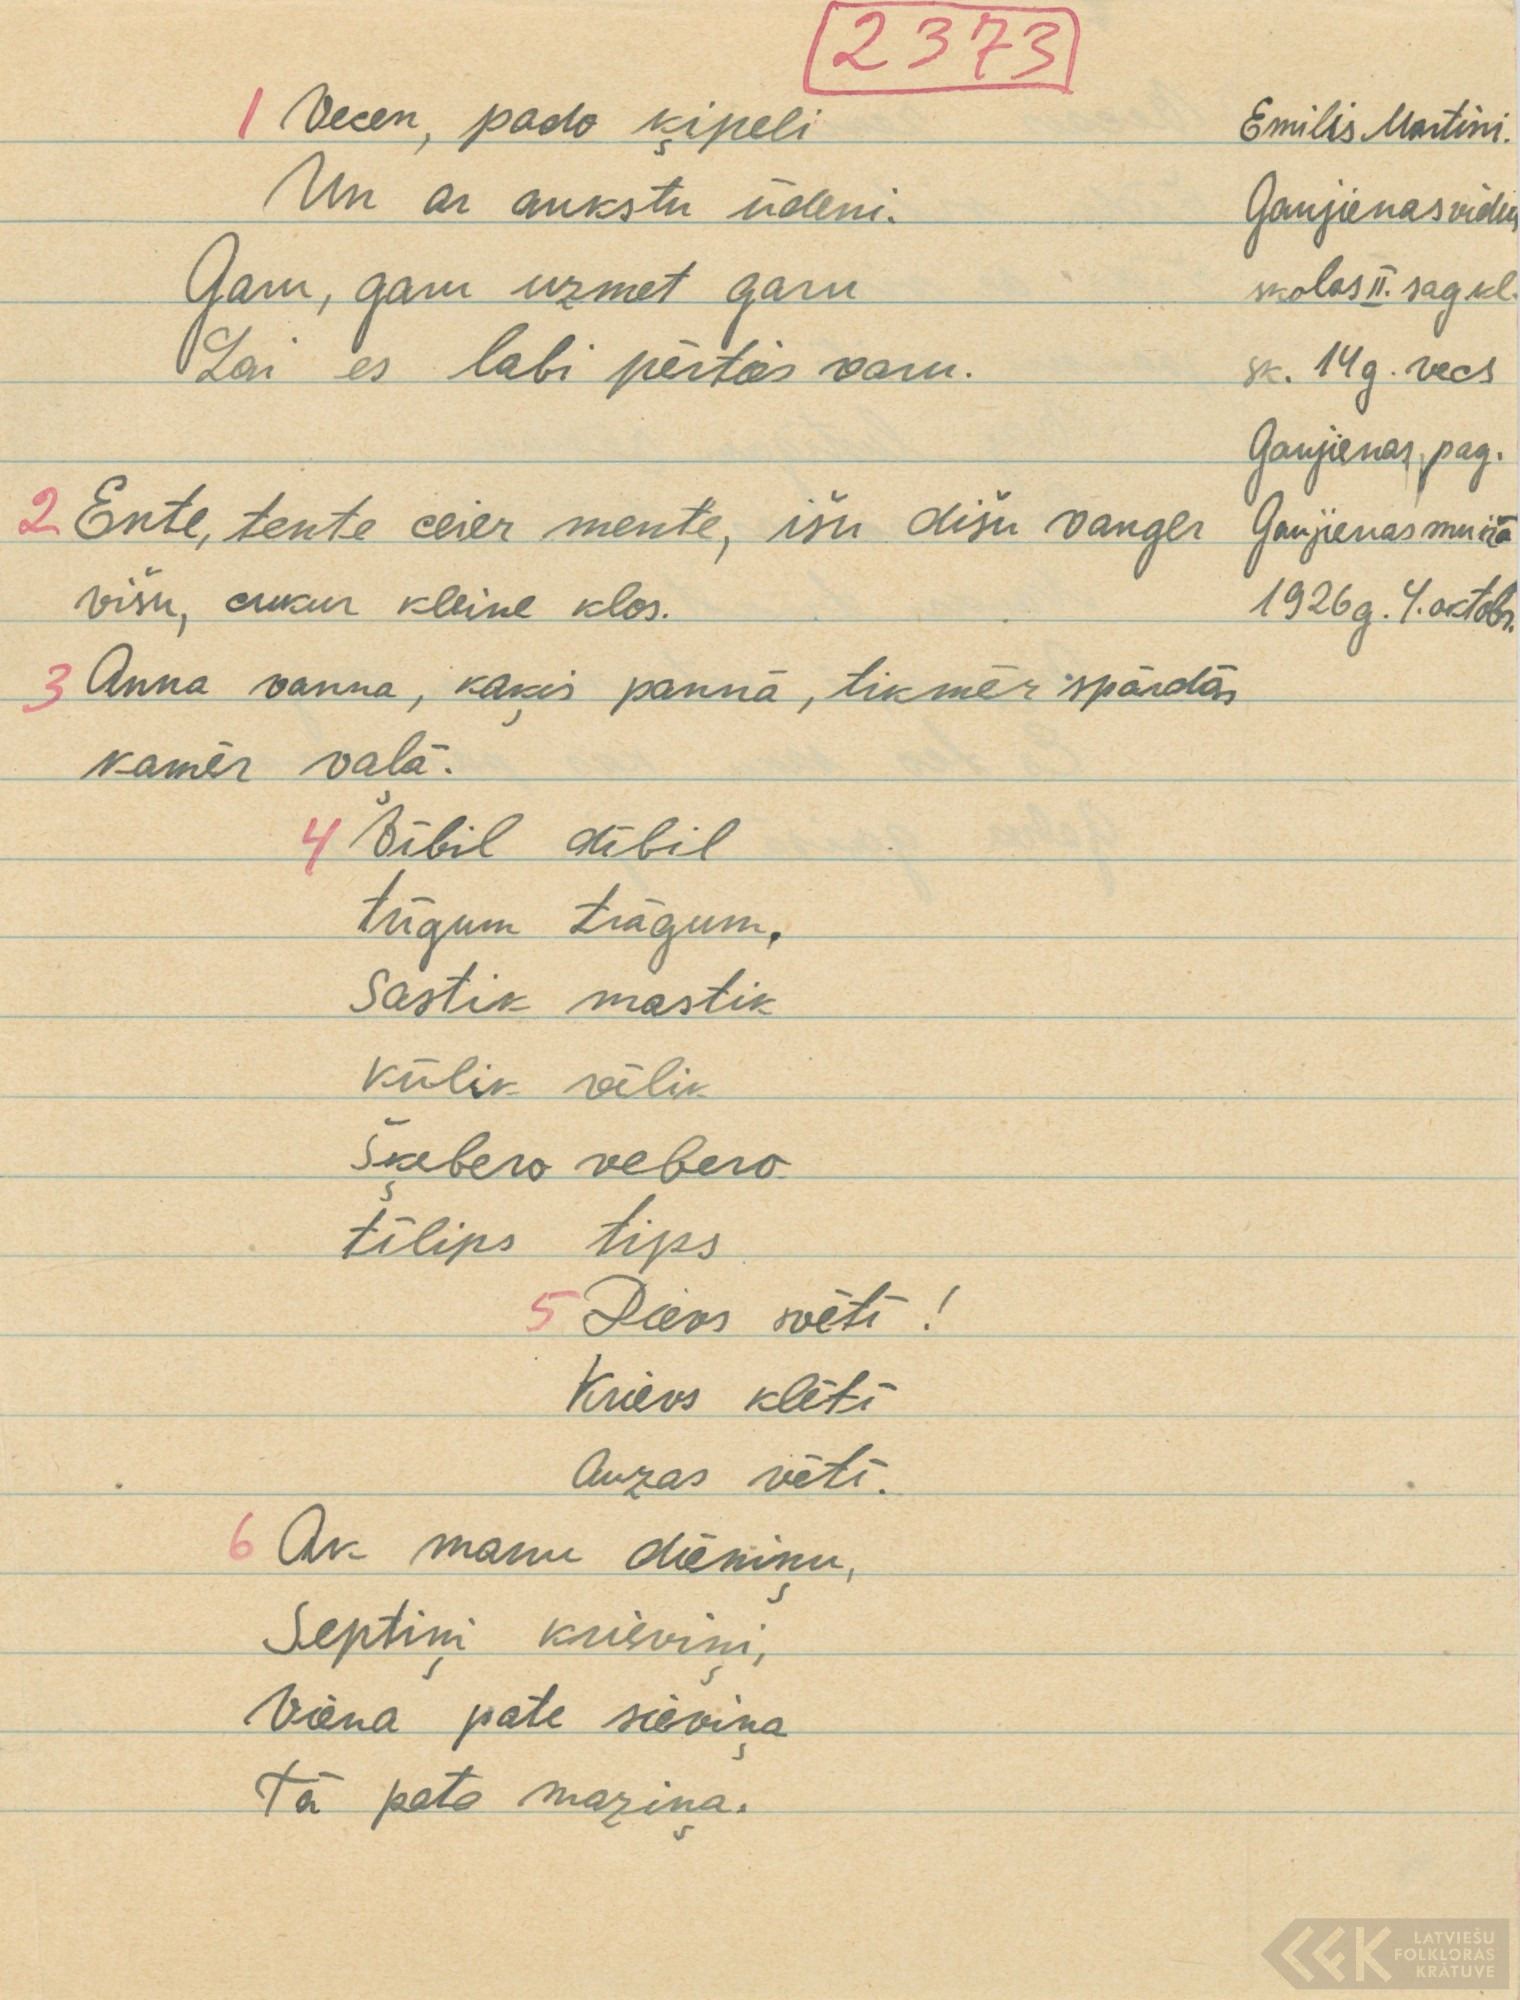 2373
1 Vecen, pado ķipeli
Un ar aukstu ūdeni.
Garu, garu uzmet garu
Lai es labi pērtiēs varu.
Emilis Martini.
Gaujienas vidus
skolas II. sag kl.
sk. 14 g. vecs
Gaujienas pag.
Gaujienas muižā
1926 g. 4. oktobr.
2 Ente, tente ceier mente, išu dišu vanger
višu, cukur kleine klos.
3 Anna vanna, kaķis pannā, tikmēr spārdās
kamēr vaļā.
4 Vībil dībil
trīgum trāgum,
Sastik mastik
kūlik vēlik
Šķebero vebero
tīlips tips
5 Dievs svētī!
Krievs klētī
Auzas vētī.
6 Ak manu dieniņu,
Septiņi krieviņi,
Viena pate sieviņa
Tā pate maziņa.
LATVIEŠU
FOLKLORAS
KRĀTUVE